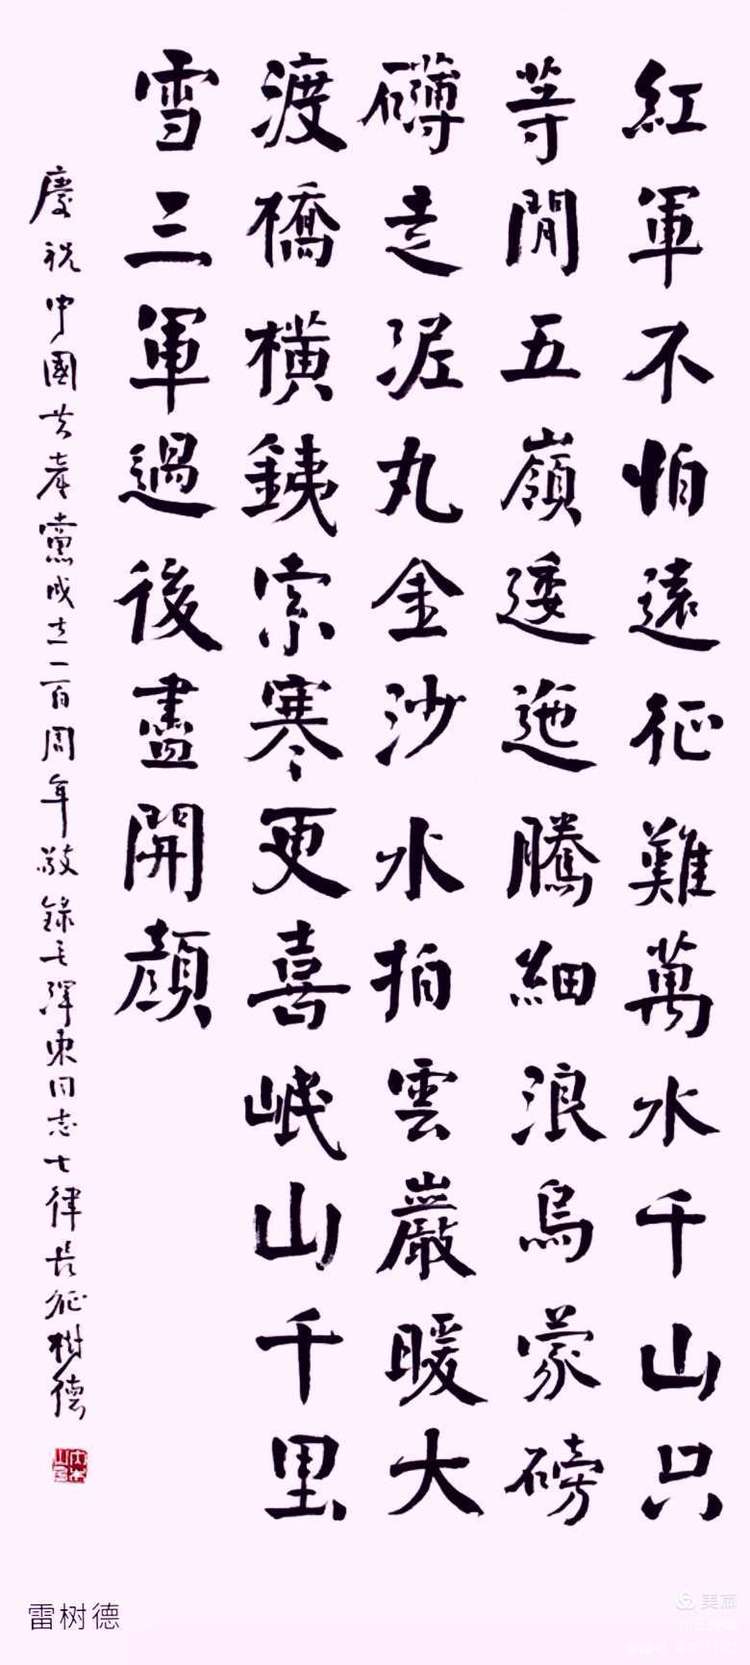 紅軍不怕遠征難萬水千山只
等閒五嶺逶迤騰細浪烏蒙磅
礴走泥丸金沙水拍雲巖暖大
渡橋橫鉄索寒更喜岷山千里
雪三軍過後盡開顏
慶祝中國共產黨成立一百周年敬錄毛澤東同志七律長征樹德
雷树德
美篇